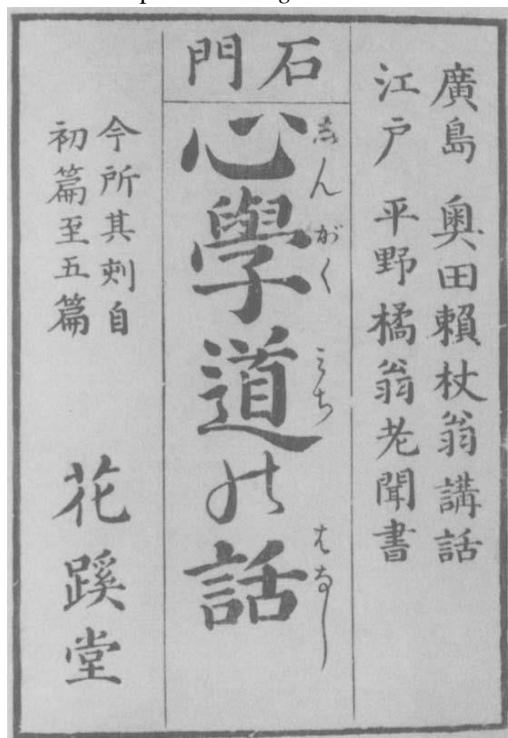 廣島 奥田頼杖翁講話
江戸 平野橘翁老聞書
石門
心學道の話
しんがく
みち
はなし
今所其刻自
初篇至五篇
花蹊堂